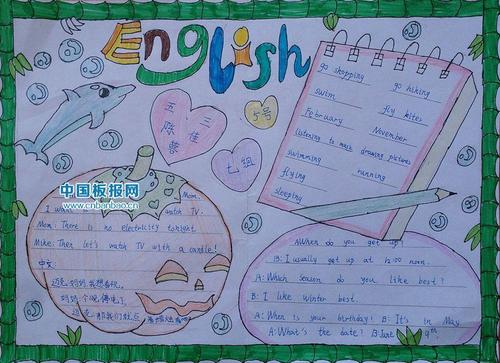 English
五三
陈佳
蓉
5号
七组
go shopping
go hiking
swim
fly kites
February
November
listening to music drawing pictures
swimming
running
flying
sleeping
中国板报网
www.cnbanbao.cn
Mom.
I want watch TV.
Mom: There is no electricity tonight.
Mike: Then let's watch TV with a candle!
中文:
AWhen do you get up?
B: I usually get up at 12:00 noon.
A: Which season do you like best?
B: I like Winter best.
A: When is your birthday? B: It's in May
A: What's the date? B: June 9th.